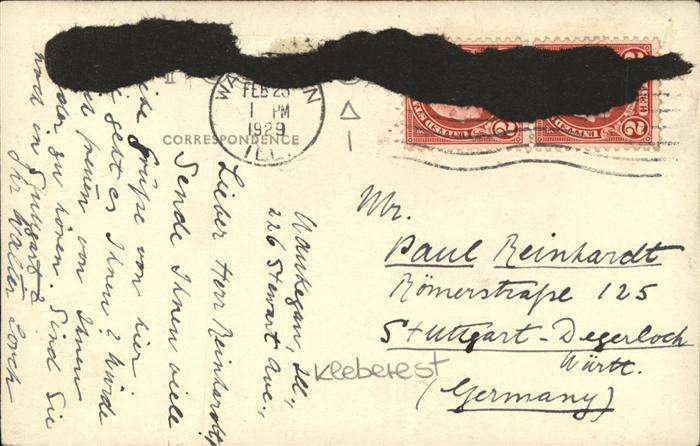 WA
AN
FEB 23
1 PM
1929
ILL.
CORRESPONDENCE
Waukegan, Ill.,
226 Stewart Ave.,
Lieber Herr Reinhardt,
Sende Ihnen viele
Grüße von hier.
geht es Ihnen? Würde
freuen von Ihnen
zu hören. Sind Sie
noch in Stuttgart?
Ihr Walter Lorch
Mr.
Paul Reinhardt
Römerstraße 125
Stuttgart-Degerloch
Württ.
(Germany)
Kleberest
2
2